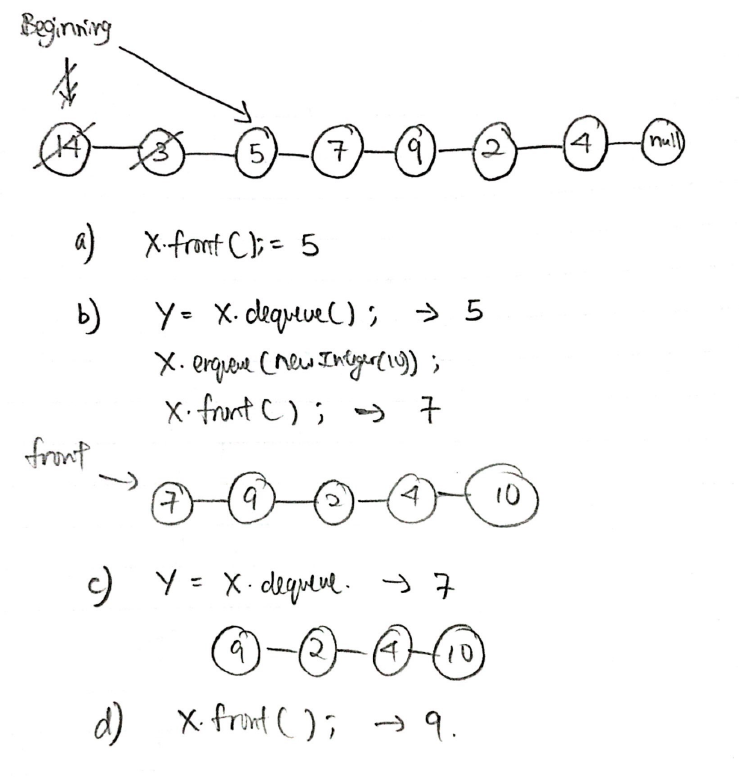 Beginning
14 3 5 7 9 2 4 null
a) X.front(); = 5
b) Y = X.dequeue(); → 5
X.enqueue(new Integer(10));
X.front(); → 7
front →
7 9 2 4 10
c) Y = X.dequeue. → 7
9 2 4 10
d) X.front(); → 9.